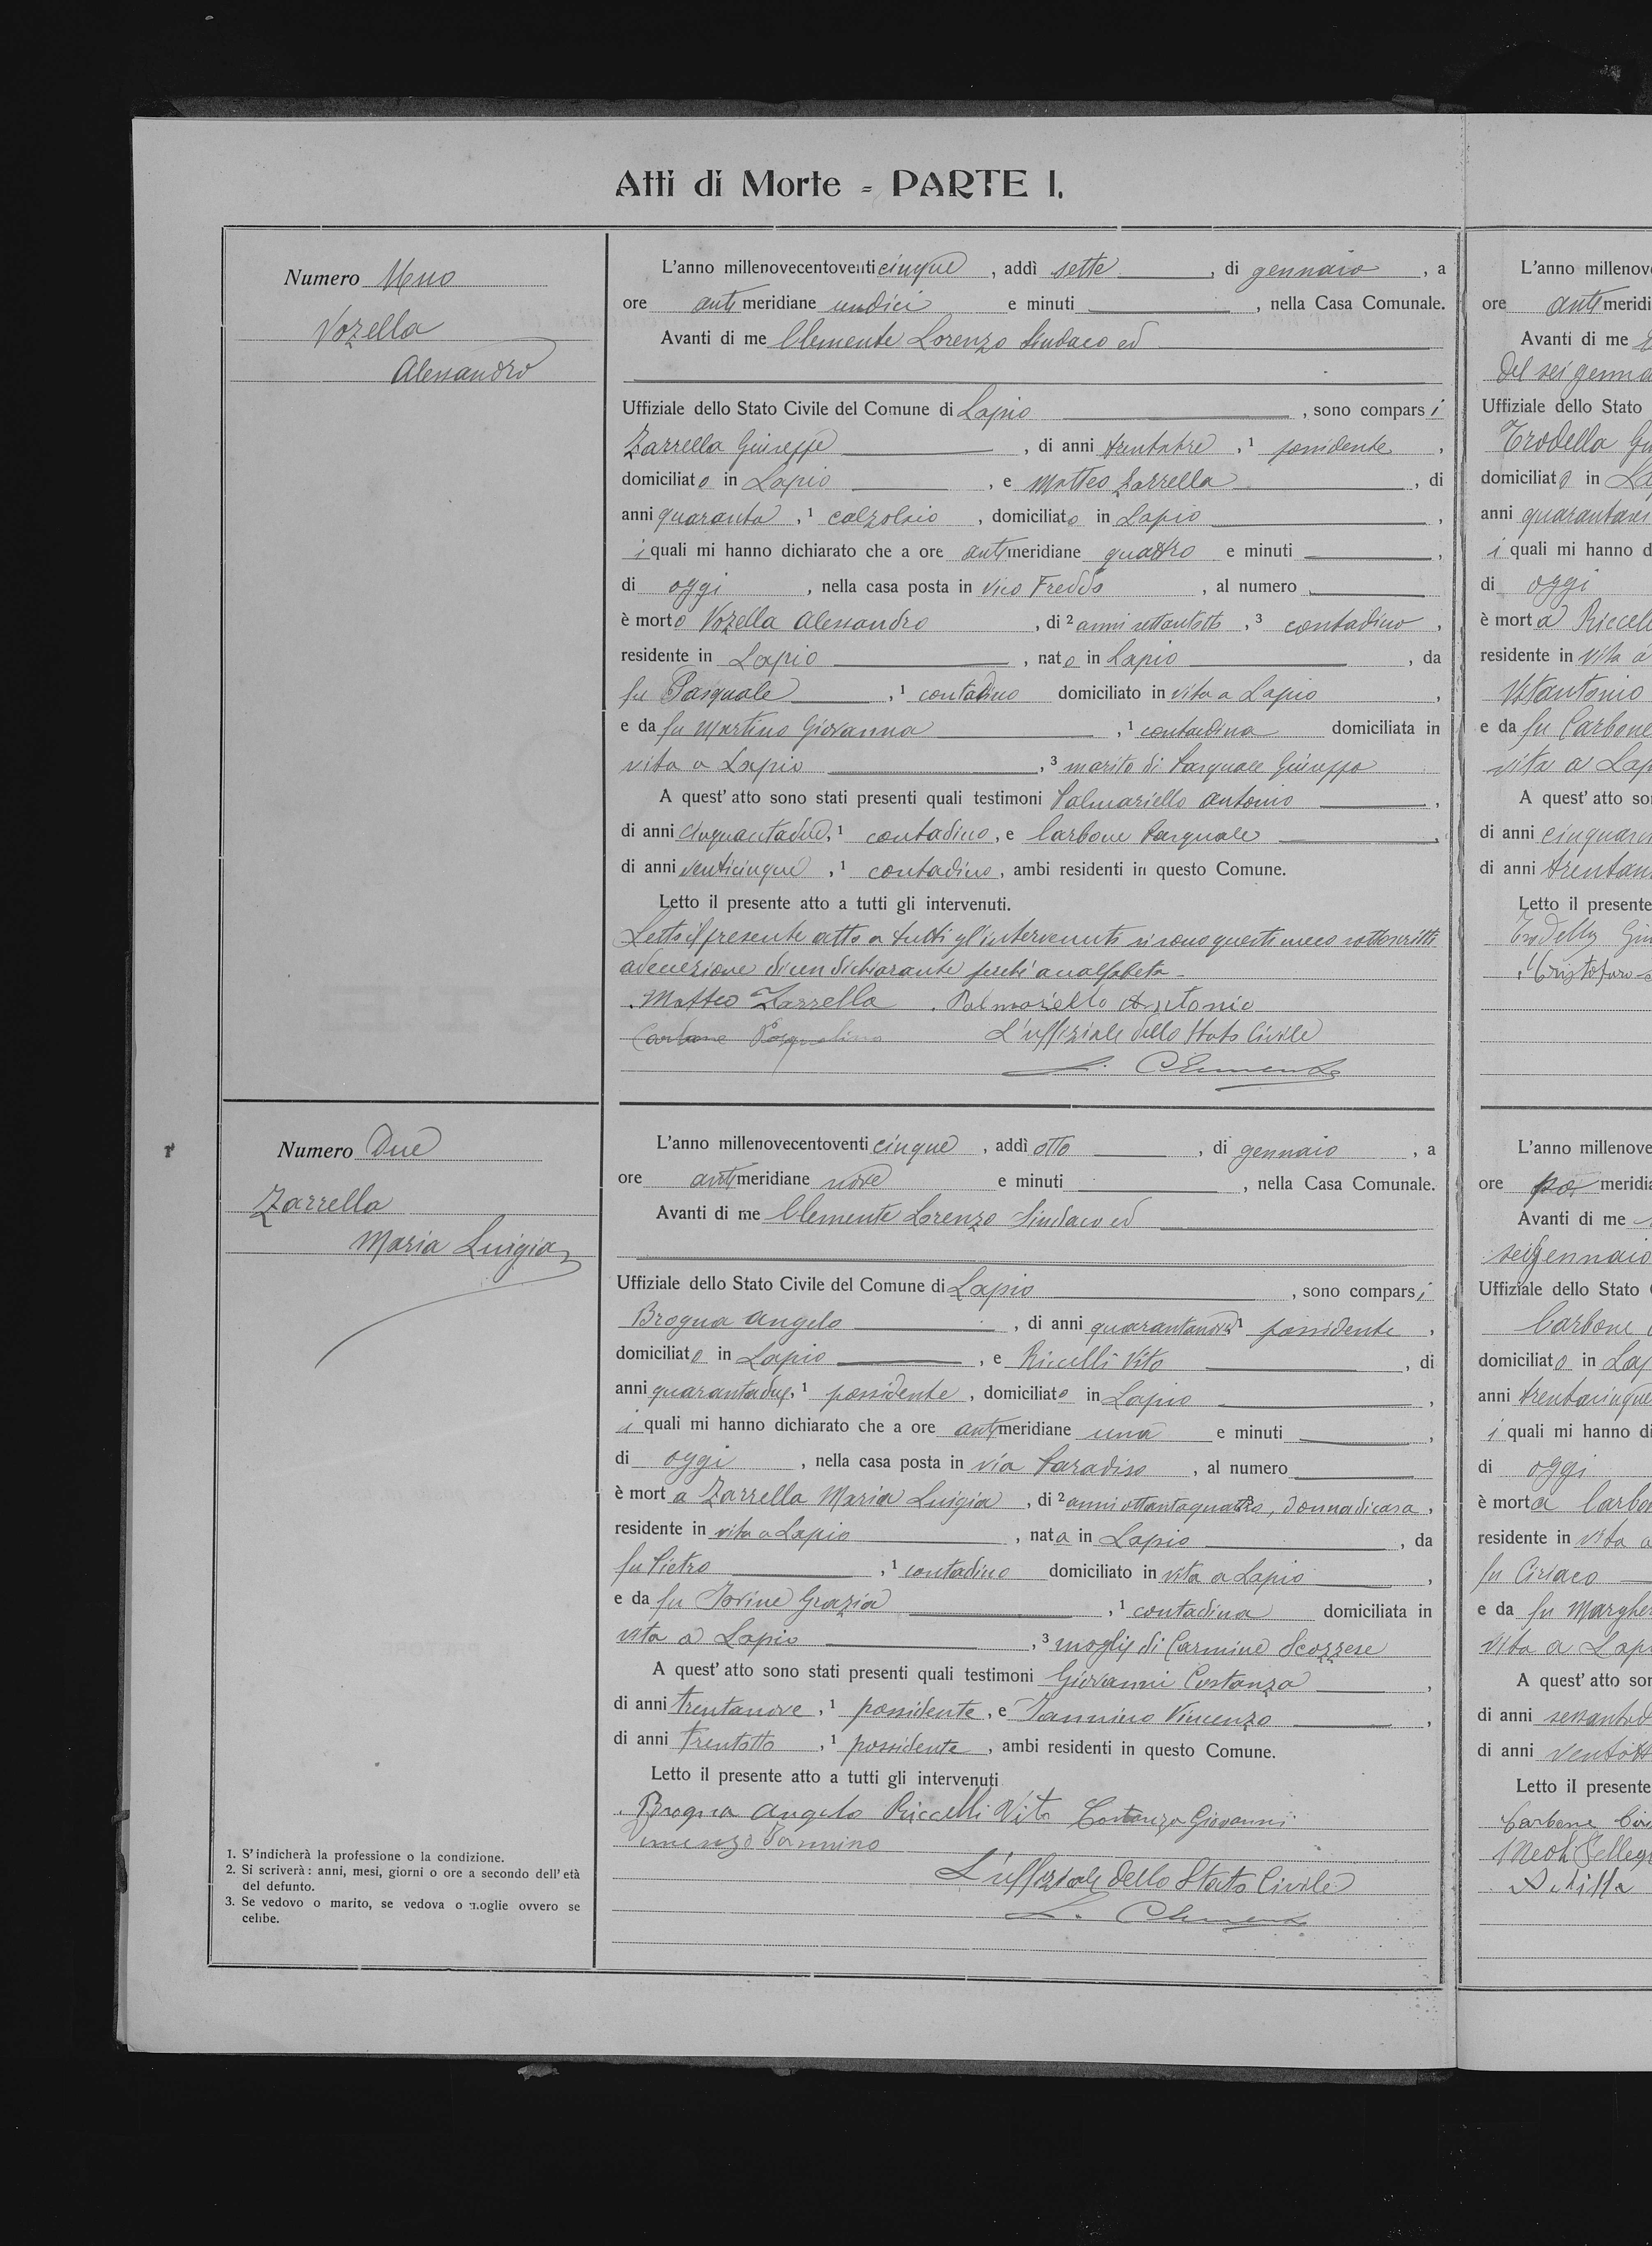 Atti di Morte = PARTE I.
Numero Uno
Vozella
Alessandro
L'anno millenovecentoventicinque, addì sette, di gennaio, a
ore antimeridiane undici e minuti , nella Casa Comunale.
Avanti di me Clemente Lorenzo Sindaco ed
Uffiziale dello Stato Civile del Comune di Lapio, sono comparsi
Zarrella Giuseppe, di anni trentatre, 1 possidente,
domiciliato in Lapio, e Matteo Zarrella, di
anni quaranta, 1 calzolaio, domiciliato in Lapio,
i quali mi hanno dichiarato che a ore antimeridiane quattro e minuti ,
di oggi, nella casa posta in vico Freddo, al numero
è morto Vozella Alessandro, di 2 anni settantotto, 3 contadino,
residente in Lapio, nato in Lapio, da
fu Pasquale, 1 contadino domiciliato in vita a Lapio,
e da fu Martino Giovanna, 1 contadina domiciliata in
vita a Lapio, 3 marito di Pasquale Giuseppa
A quest' atto sono stati presenti quali testimoni Palmariello Antonio,
di anni cinquantadue, 1 contadino, e Carbone Pasquale,
di anni venticinque, 1 contadino, ambi residenti in questo Comune.
Letto il presente atto a tutti gli intervenuti.
Letto il presente atto a tutti gl'intervenuti si sono questi meco sottoscritti
ad eccezione di un dichiarante perché analfabeta
Matteo Zarrella Palmariello Antonio
Carbone Pasqualino L'uffiziale dello Stato Civile
L. Clemente
Numero Due
Zarrella
Maria Luigia
L'anno millenovecentoventicinque, addì otto, di gennaio, a
ore antimeridiane nove e minuti , nella Casa Comunale.
Avanti di me Clemente Lorenzo Sindaco ed
Uffiziale dello Stato Civile del Comune di Lapio, sono comparsi
Brogna Angelo, di anni quarantanove, 1 possidente,
domiciliato in Lapio, e Riccelli Vito, di
anni quarantadue, 1 possidente, domiciliato in Lapio,
i quali mi hanno dichiarato che a ore antimeridiane una e minuti ,
di oggi, nella casa posta in via Paradiso, al numero
è morta Zarrella Maria Luigia, di 2 anni ottantaquattro, 3 donna di casa,
residente in vita a Lapio, nata in Lapio, da
fu Pietro, 1 contadino domiciliato in vita a Lapio,
e da fu Iovine Grazia, 1 contadina domiciliata in
vita a Lapio, 3 moglie di Carmine Scozzese
A quest' atto sono stati presenti quali testimoni Giovanni Costanza,
di anni trentanove, 1 possidente, e Iannino Vincenzo,
di anni trentotto, 1 possidente, ambi residenti in questo Comune.
Letto il presente atto a tutti gli intervenuti
Brogna Angelo Riccelli Vito Costanza Giovanni
Vincenzo Iannino
L'uffiziale dello Stato Civile
L. Clemente
1. S'indicherà la professione o la condizione.
2. Si scriverà: anni, mesi, giorni o ore a secondo dell' età
del defunto.
3. Se vedovo o marito, se vedova o moglie ovvero se
celibe.
L'anno millenov
ore antimeridi
Avanti di me
del sei genna
Uffiziale dello Stato
Trodella Gi
domiciliato in La
anni quarantasei
i quali mi hanno d
di oggi
è morta Riccell
residente in vita a
Vitantonio
e da fu Carbone
vita a Lap
A quest' atto so
di anni cinquan
di anni trentan
Letto il presente
Trodella Giu
Cristoforo
L'anno millenove
ore pos meridia
Avanti di me
sei gennaio
Uffiziale dello Stato
Carbone
domiciliato in Lap
anni trentacinque
i quali mi hanno di
di oggi
è morta Carbo
residente in vita a
fu Ciriaco
e da fu Margher
vita a Lapi
A quest' atto son
di anni sessantad
di anni ventott
Letto il presente
Carbone Cir
Meoli Pellegr